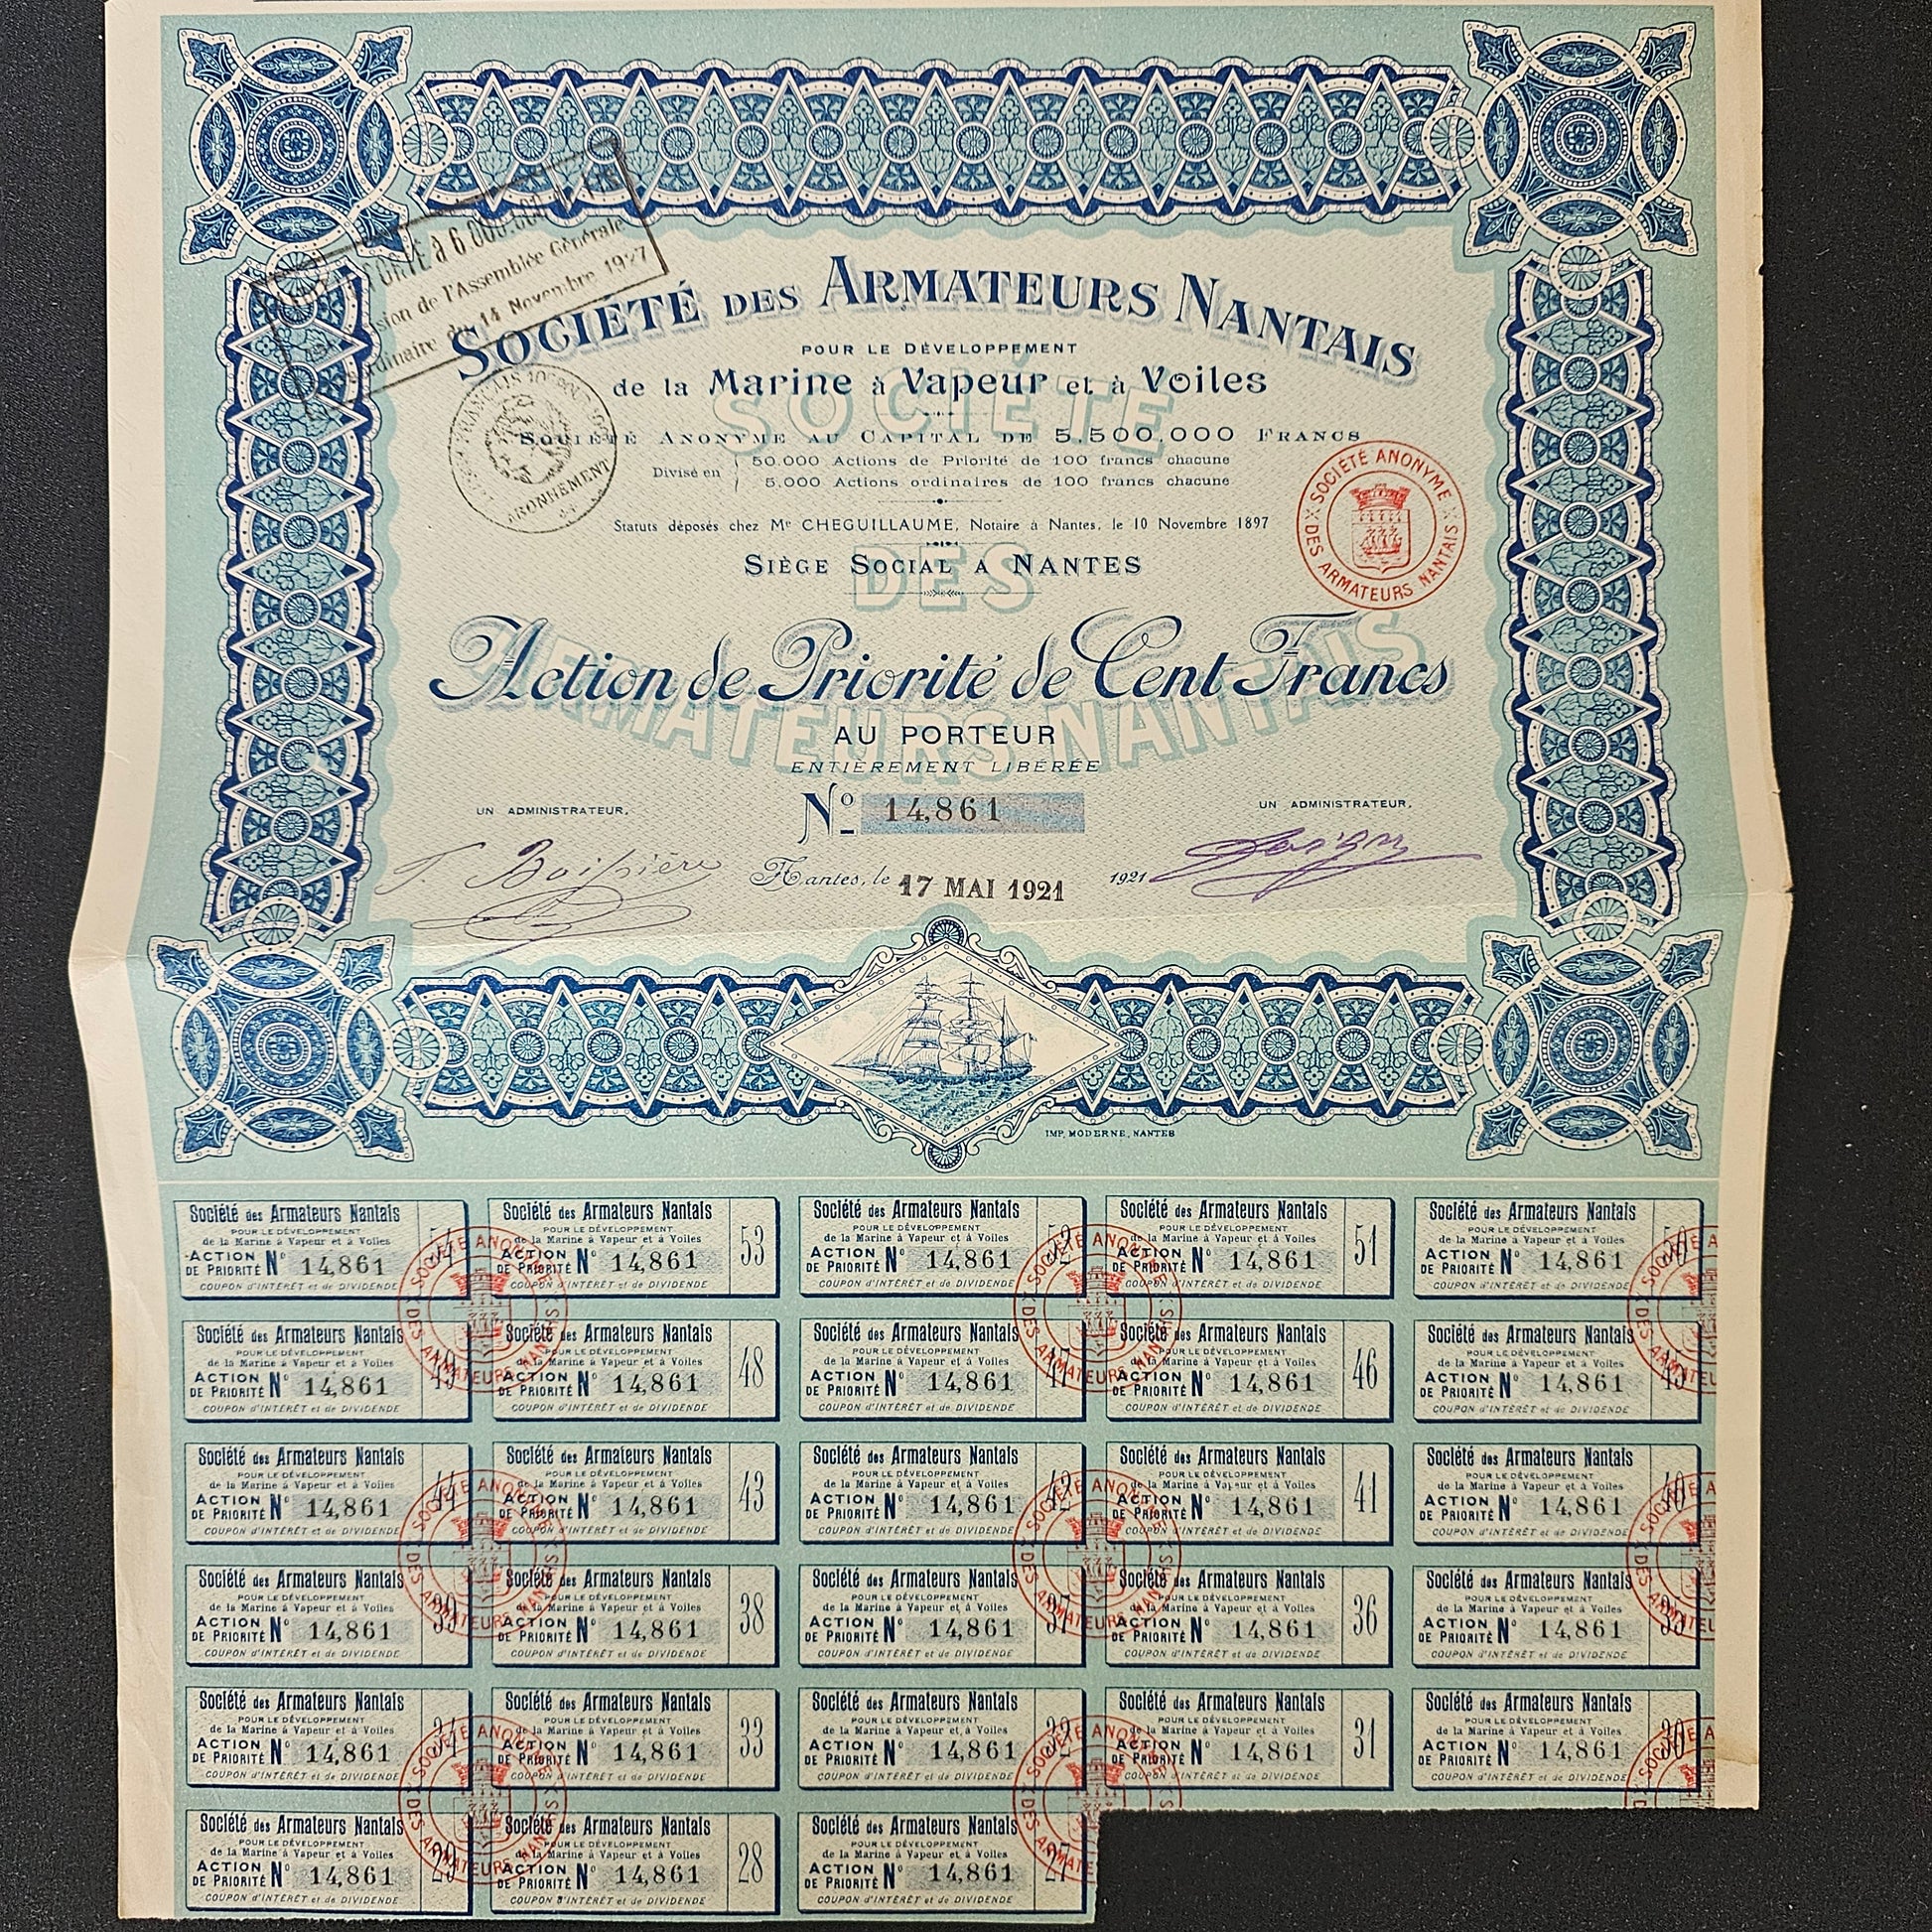 SOCIÉTÉ DES ARMATEURS NANTAIS
POUR LE DÉVELOPPEMENT
de la Marine à Vapeur et à Voiles
SOCIÉTÉ ANONYME AU CAPITAL DE 5.500.000 FRANCS
Divisé en
50.000 Actions de Priorité de 100 francs chacune
5.000 Actions ordinaires de 100 francs chacune
Statuts déposés chez Me CHEGUILLAUME, Notaire à Nantes, le 10 Novembre 1897
SIÈGE SOCIAL A NANTES
Action de Priorité de Cent Francs
AU PORTEUR
ENTIÈREMENT LIBÉRÉE
No 14,861
UN ADMINISTRATEUR,
UN ADMINISTRATEUR,
Nantes, le 17 MAI 1921 1921
à 6.000.000
de l'Assemblée Générale
du 14 Novembre 1927
ABONNEMENT
SOCIÉTÉ ANONYME
DES ARMATEURS NANTAIS
SOCIÉTÉ
DES
ARMATEURS NANTAIS
IMP. MODERNE, NANTES
Société des Armateurs Nantais
POUR LE DÉVELOPPEMENT
de la Marine à Vapeur et à Voiles
ACTION DE PRIORITÉ No 14,861
COUPON d'INTÉRÊT et de DIVIDENDE
54
Société des Armateurs Nantais
POUR LE DÉVELOPPEMENT
de la Marine à Vapeur et à Voiles
ACTION DE PRIORITÉ No 14,861
COUPON d'INTÉRÊT et de DIVIDENDE
53
Société des Armateurs Nantais
POUR LE DÉVELOPPEMENT
de la Marine à Vapeur et à Voiles
ACTION DE PRIORITÉ No 14,861
COUPON d'INTÉRÊT et de DIVIDENDE
52
Société des Armateurs Nantais
POUR LE DÉVELOPPEMENT
de la Marine à Vapeur et à Voiles
ACTION DE PRIORITÉ No 14,861
COUPON d'INTÉRÊT et de DIVIDENDE
51
Société des Armateurs Nantais
POUR LE DÉVELOPPEMENT
de la Marine à Vapeur et à Voiles
ACTION DE PRIORITÉ No 14,861
COUPON d'INTÉRÊT et de DIVIDENDE
50
Société des Armateurs Nantais
POUR LE DÉVELOPPEMENT
de la Marine à Vapeur et à Voiles
ACTION DE PRIORITÉ No 14,861
COUPON d'INTÉRÊT et de DIVIDENDE
49
Société des Armateurs Nantais
POUR LE DÉVELOPPEMENT
de la Marine à Vapeur et à Voiles
ACTION DE PRIORITÉ No 14,861
COUPON d'INTÉRÊT et de DIVIDENDE
48
Société des Armateurs Nantais
POUR LE DÉVELOPPEMENT
de la Marine à Vapeur et à Voiles
ACTION DE PRIORITÉ No 14,861
COUPON d'INTÉRÊT et de DIVIDENDE
47
Société des Armateurs Nantais
POUR LE DÉVELOPPEMENT
de la Marine à Vapeur et à Voiles
ACTION DE PRIORITÉ No 14,861
COUPON d'INTÉRÊT et de DIVIDENDE
46
Société des Armateurs Nantais
POUR LE DÉVELOPPEMENT
de la Marine à Vapeur et à Voiles
ACTION DE PRIORITÉ No 14,861
COUPON d'INTÉRÊT et de DIVIDENDE
45
Société des Armateurs Nantais
POUR LE DÉVELOPPEMENT
de la Marine à Vapeur et à Voiles
ACTION DE PRIORITÉ No 14,861
COUPON d'INTÉRÊT et de DIVIDENDE
44
Société des Armateurs Nantais
POUR LE DÉVELOPPEMENT
de la Marine à Vapeur et à Voiles
ACTION DE PRIORITÉ No 14,861
COUPON d'INTÉRÊT et de DIVIDENDE
43
Société des Armateurs Nantais
POUR LE DÉVELOPPEMENT
de la Marine à Vapeur et à Voiles
ACTION DE PRIORITÉ No 14,861
COUPON d'INTÉRÊT et de DIVIDENDE
42
Société des Armateurs Nantais
POUR LE DÉVELOPPEMENT
de la Marine à Vapeur et à Voiles
ACTION DE PRIORITÉ No 14,861
COUPON d'INTÉRÊT et de DIVIDENDE
41
Société des Armateurs Nantais
POUR LE DÉVELOPPEMENT
de la Marine à Vapeur et à Voiles
ACTION DE PRIORITÉ No 14,861
COUPON d'INTÉRÊT et de DIVIDENDE
40
Société des Armateurs Nantais
POUR LE DÉVELOPPEMENT
de la Marine à Vapeur et à Voiles
ACTION DE PRIORITÉ No 14,861
COUPON d'INTÉRÊT et de DIVIDENDE
39
Société des Armateurs Nantais
POUR LE DÉVELOPPEMENT
de la Marine à Vapeur et à Voiles
ACTION DE PRIORITÉ No 14,861
COUPON d'INTÉRÊT et de DIVIDENDE
38
Société des Armateurs Nantais
POUR LE DÉVELOPPEMENT
de la Marine à Vapeur et à Voiles
ACTION DE PRIORITÉ No 14,861
COUPON d'INTÉRÊT et de DIVIDENDE
37
Société des Armateurs Nantais
POUR LE DÉVELOPPEMENT
de la Marine à Vapeur et à Voiles
ACTION DE PRIORITÉ No 14,861
COUPON d'INTÉRÊT et de DIVIDENDE
36
Société des Armateurs Nantais
POUR LE DÉVELOPPEMENT
de la Marine à Vapeur et à Voiles
ACTION DE PRIORITÉ No 14,861
COUPON d'INTÉRÊT et de DIVIDENDE
35
Société des Armateurs Nantais
POUR LE DÉVELOPPEMENT
de la Marine à Vapeur et à Voiles
ACTION DE PRIORITÉ No 14,861
COUPON d'INTÉRÊT et de DIVIDENDE
34
Société des Armateurs Nantais
POUR LE DÉVELOPPEMENT
de la Marine à Vapeur et à Voiles
ACTION DE PRIORITÉ No 14,861
COUPON d'INTÉRÊT et de DIVIDENDE
33
Société des Armateurs Nantais
POUR LE DÉVELOPPEMENT
de la Marine à Vapeur et à Voiles
ACTION DE PRIORITÉ No 14,861
COUPON d'INTÉRÊT et de DIVIDENDE
32
Société des Armateurs Nantais
POUR LE DÉVELOPPEMENT
de la Marine à Vapeur et à Voiles
ACTION DE PRIORITÉ No 14,861
COUPON d'INTÉRÊT et de DIVIDENDE
31
Société des Armateurs Nantais
POUR LE DÉVELOPPEMENT
de la Marine à Vapeur et à Voiles
ACTION DE PRIORITÉ No 14,861
COUPON d'INTÉRÊT et de DIVIDENDE
30
Société des Armateurs Nantais
POUR LE DÉVELOPPEMENT
de la Marine à Vapeur et à Voiles
ACTION DE PRIORITÉ No 14,861
COUPON d'INTÉRÊT et de DIVIDENDE
29
Société des Armateurs Nantais
POUR LE DÉVELOPPEMENT
de la Marine à Vapeur et à Voiles
ACTION DE PRIORITÉ No 14,861
COUPON d'INTÉRÊT et de DIVIDENDE
28
Société des Armateurs Nantais
POUR LE DÉVELOPPEMENT
de la Marine à Vapeur et à Voiles
ACTION DE PRIORITÉ No 14,861
COUPON d'INTÉRÊT et de DIVIDENDE
27